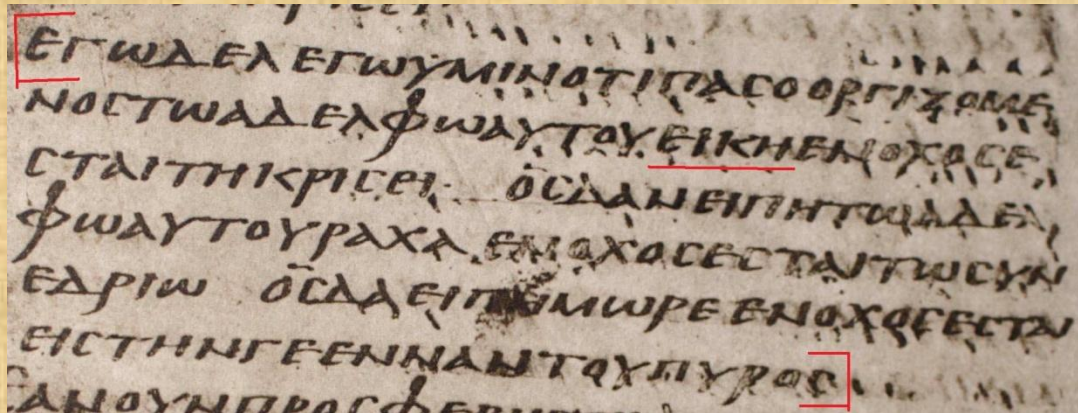 ΕΓωΔΕΛΕΓωΥΜΙΝΟΤΙΠΑϹΟΟΡΓΙΖΟΜΕ
ΝΟϹΤωΑΔΕΛΦωΑΥΤΟΥΕΙΚΗΕΝΟΧΟϹΕ
ϹΤΑΙΤΗΚΡΙϹΕΙ· ΟϹΔΑΝΕΙΠΗΤωΑΔΕΛ
ΦωΑΥΤΟΥΡΑΧΑ ΕΝΟΧΟϹΕϹΤΑΙΤωϹΥΝ
ΕΔΡΙω ΟϹΔΑΕΙΠΗΜωΡΕΕΝΟΧΟϹΕϹΤΑΙ
ΕΙϹΤΗΝΓΕΕΝΝΑΝΤΟΥΠΥΡΟϹ
ΑΝΟΥΝΠΡΟϹΦΕΡ